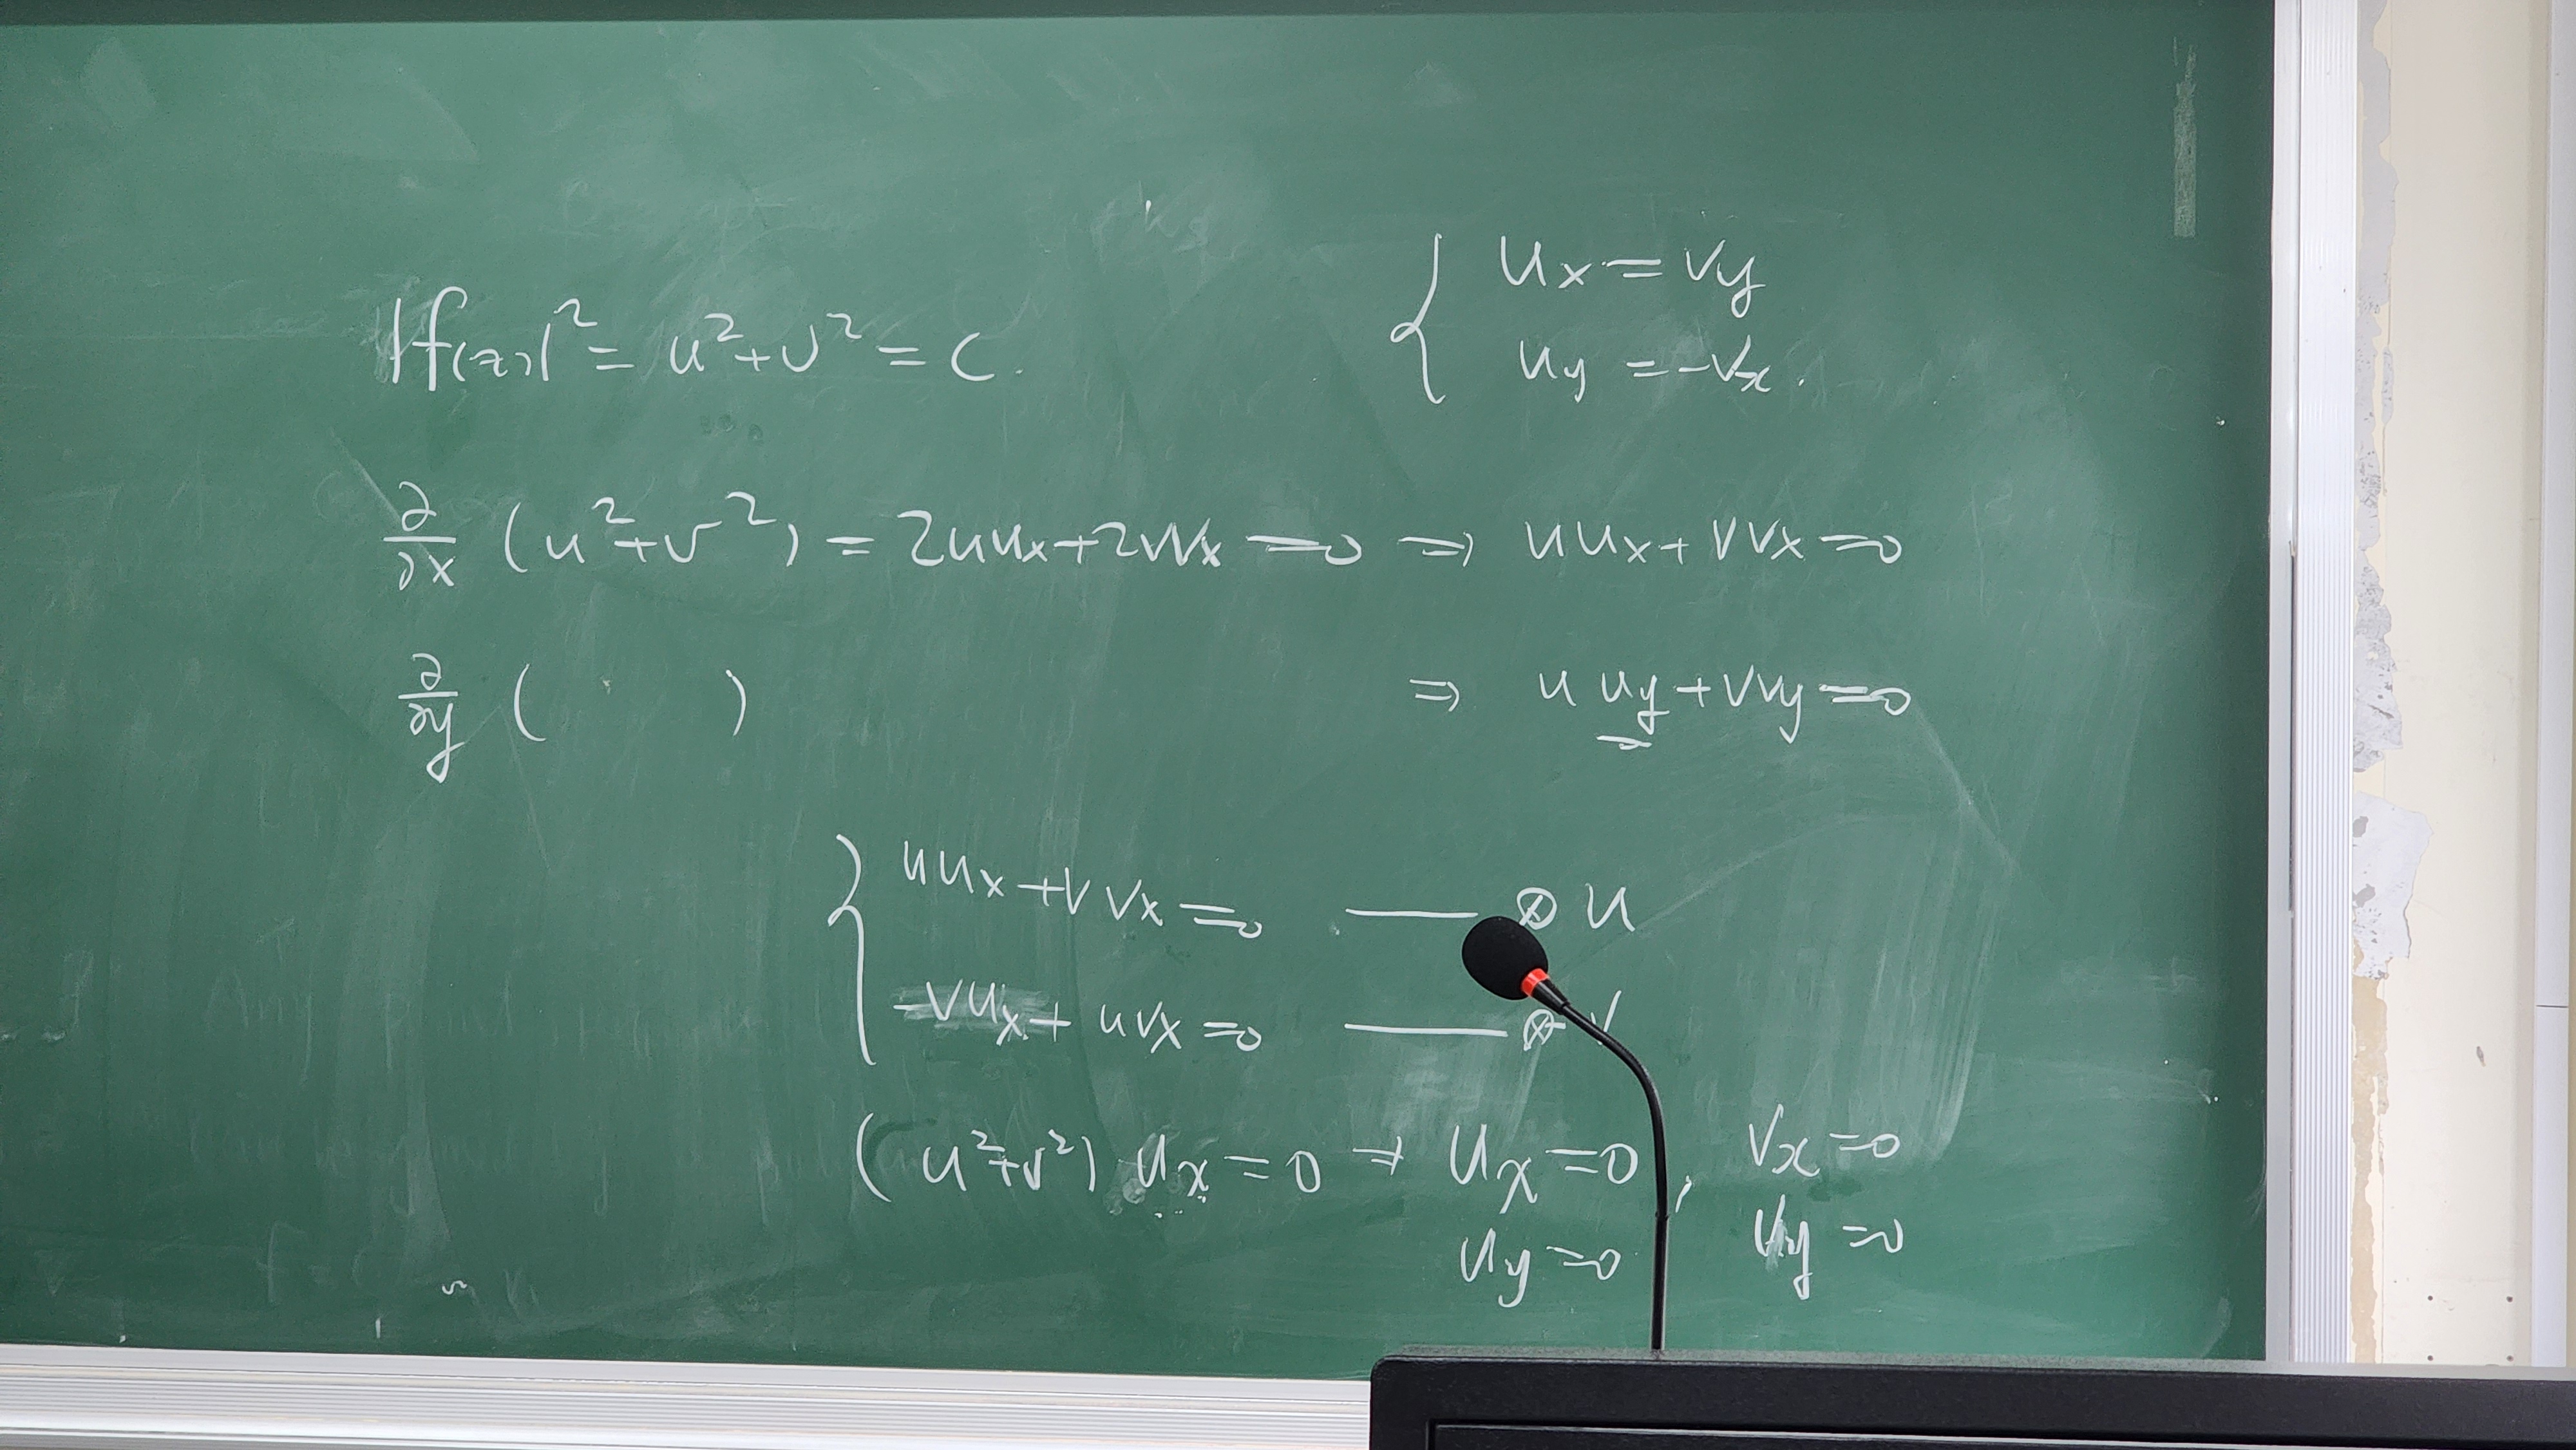 |f(z)|² = u²+v² = c.
{ ux = vy
uy = -vx.
∂/∂x (u²+v²) = 2uux+2vvx = 0 ⇒ uux + vvx = 0
∂/∂y ( ) ⇒ u uy + vvy = 0
{ uux + vvx = 0 — ⊗ u
-vux + uvx = 0 — ⊗ - v
(u²+v²) ux = 0 ⇒ ux = 0, vx = 0
uy = 0 vy = 0